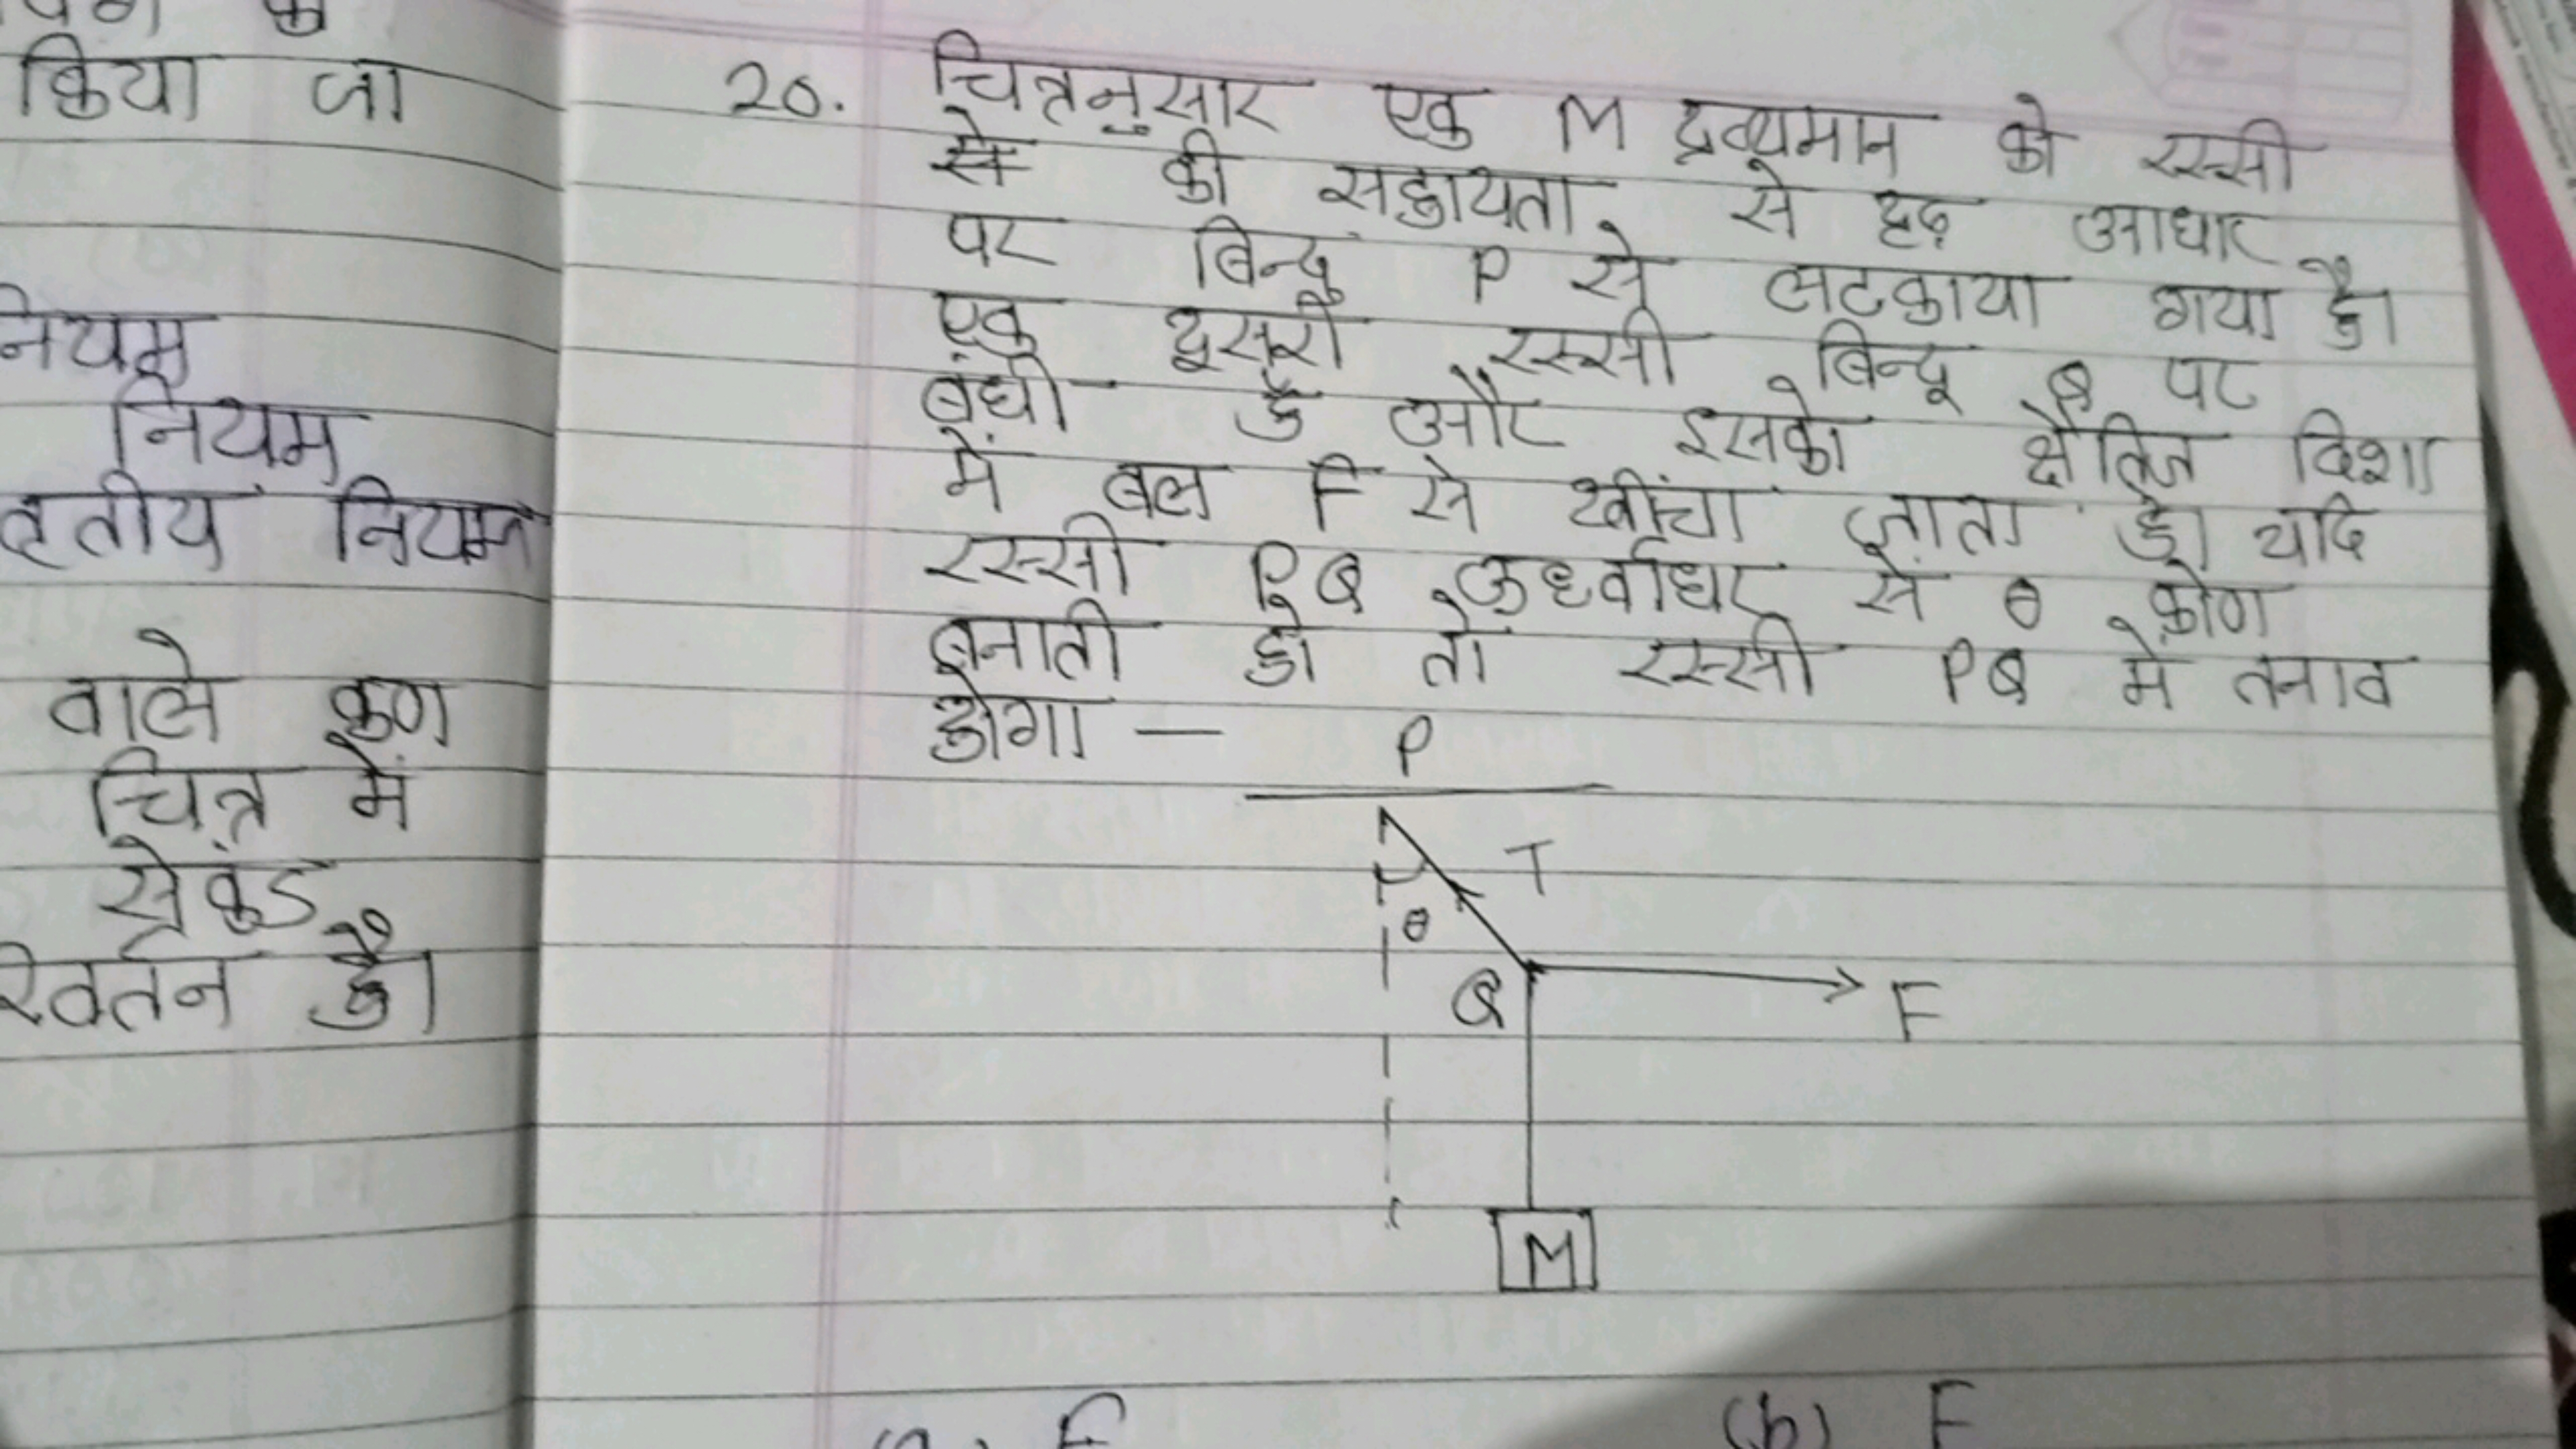 किया जा
नियम
नियम
तृतीय नियम
वाले कण
चित्र में
सेकंड
है।
20. चित्रनुसार एक M द्रव्यमान को रस्सी
की सहायता से दृढ़ आधार
पर बिन्दु P से लटकाया गया है।
एक दूसरी रस्सी बिन्दू Q पर
बंधी है और इसको क्षैतिज दिशा
में बल F से खींचा जाता है। यदि
रस्सी PQ ऊर्ध्वाधर से θ कोण
बनाती हो तो रस्सी PQ में तनाव
होगा —
P
T
θ
Q
F
M
(b) F